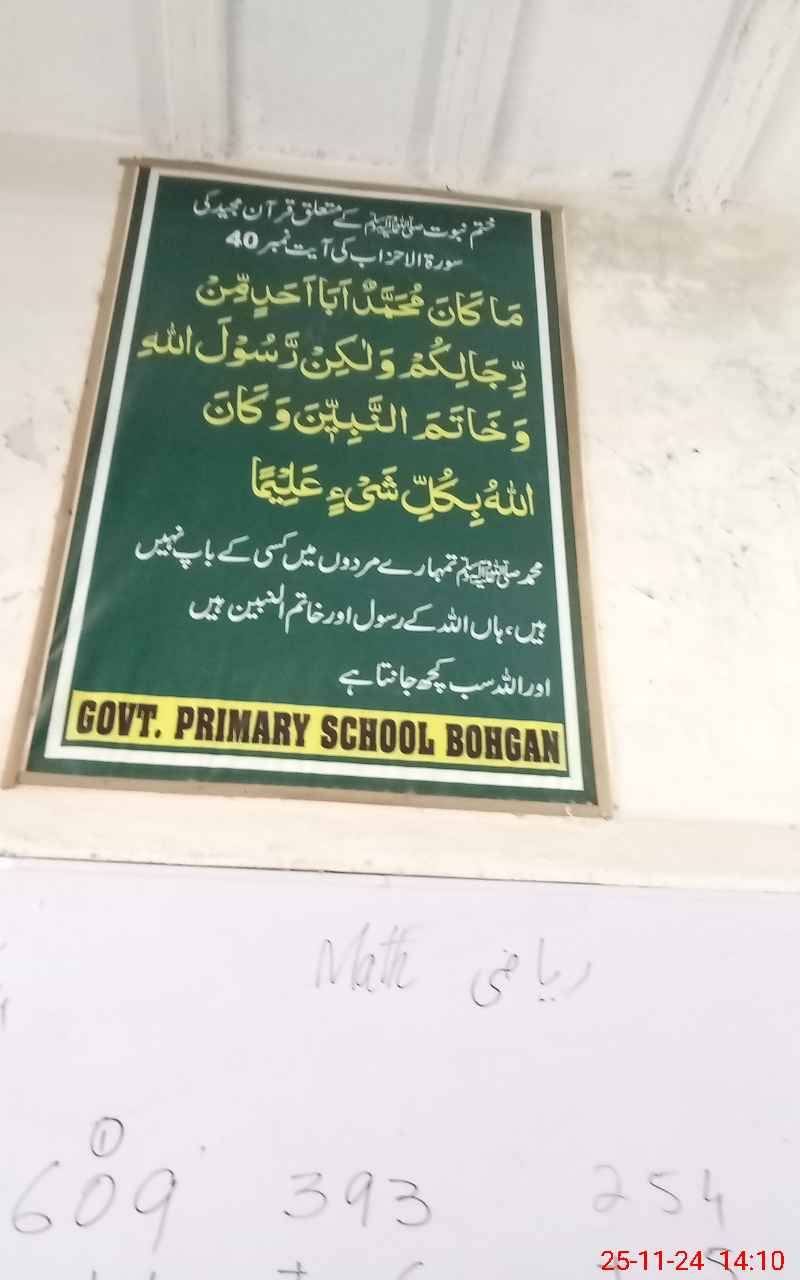 ختم نبوت ﷺ کے متعلق قرآن مجید کی
سورۃ الاحزاب کی آیت نمبر 40
مَا كَانَ مُحَمَّدٌ اَبَا اَحَدٍ مِّنْ
رِّجَالِكُمْ وَلٰكِنْ رَّسُوْلَ اللهِ
وَخَاتَمَ النَّبِيّٖنَ وَكَانَ
اللهُ بِكُلِّ شَىْءٍ عَلِيْمًا
محمد ﷺ تمہارے مردوں میں کسی کے باپ نہیں
ہیں، ہاں اللہ کے رسول اور خاتم النبین ہیں
اور اللہ سب کچھ جانتا ہے
GOVT. PRIMARY SCHOOL BOHGAN
Math ریاضی
①
609 393 254
25-11-24 14:10